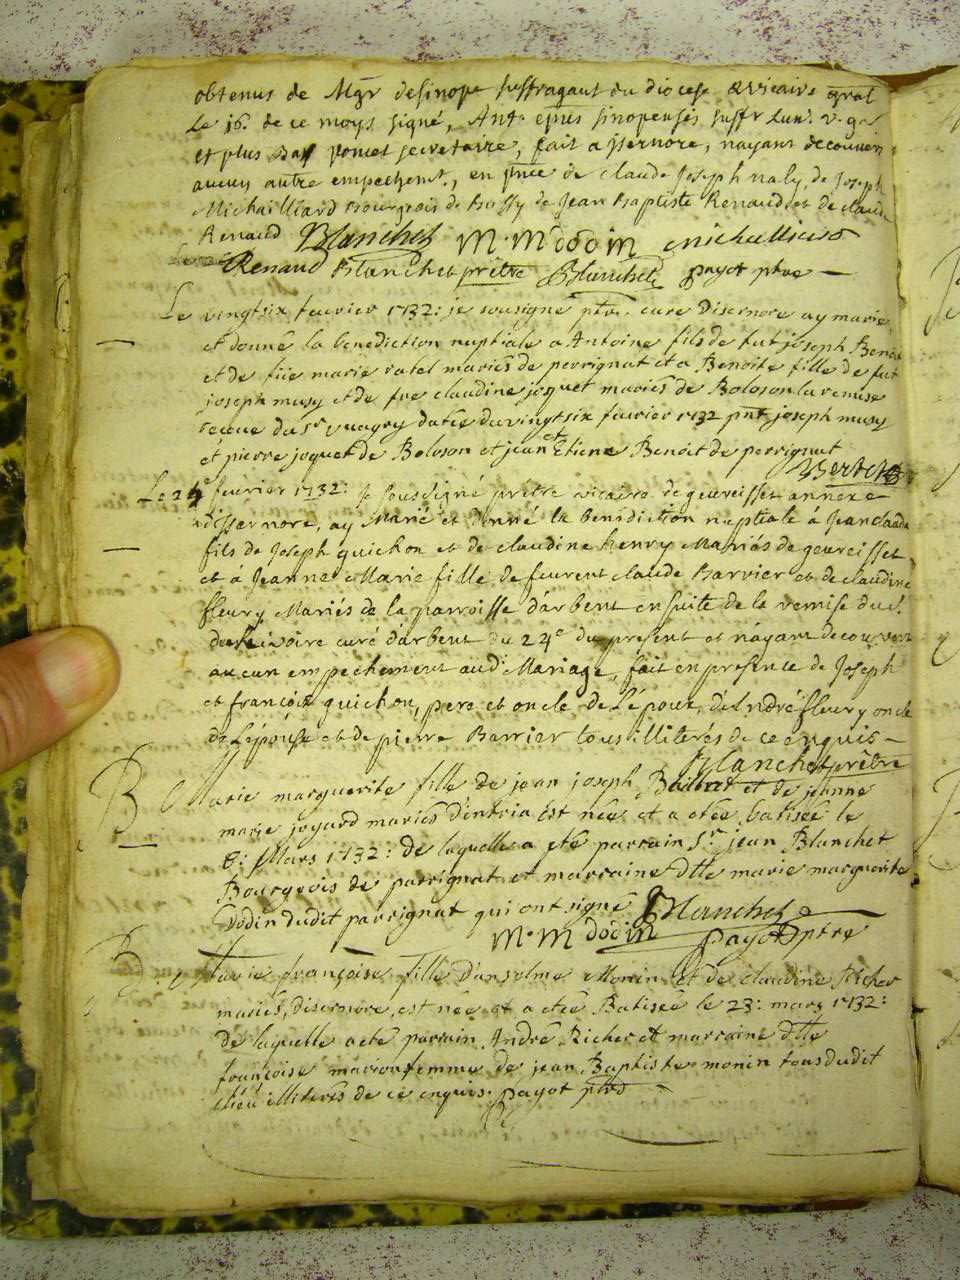 obtenus de Mgr desinope suffragant du diocese & vicaire gnal
Le 16. de ce moys signé, Ant. epūs sinopensés suffr Lun. v. g.
et plus bas poncet secretaire, fait a jsernore, nayant decouvert
aucun autre empechemt., en pnce de claude Joseph naly, de Joseph
Michailliard Bourgeois de Bussy de Jean Baptiste Renaud et de claude
Renaud Blanchet M. M dodin michailliard
Renaud Blanchet prêtre Blanchet payot ptre
Le vingtsix fevrier 1732: je sousigné ptre. curé disernore ay marié
et donné la benediction nuptiale a Antoine fils de fut joseph Benoit
et de füe marie ratel mariés de perrignat et a Benoite fille de fut
joseph musy et de fue claudine joquet mariés de Boloson la remise
receue du sr vuagry datée du vingtsix fevrier 1732 pnt joseph musy
et pierre joquet de Boloson et jean et Etiene Benoit de perrignat
Bertet
Le 24e fevrier 1732: je soussigné prêtre vicaire de geureisset annexe
dissernore, ay Marié et donné la benediction nuptiale à Jean claude
fils de Joseph guichon et de claudine henry Mariés de geureisset
et à Jeanne Marie fille de feurent claude Barvier et de claudine
fleury Mariés de la parroisse d'arbent en suite de la remise du s.
curé d'arbent du 24e du present et n'ayant decouvert
aucun empechement audt Mariage, fait en presence de Joseph
et françois guichon, pere et oncle de L'époux, d'André fleury oncle
de L'épouse et de pierre Barrier tous illiterés de ce enquis
Blanchet prêtre
B Marie marguerite fille de jean joseph Baillat et de jeanne
marie joyard mariés d'intria est née et a etée batisée le
6: Mars 1732: de laquelle a eté parrain Sr. jean Blanchet
Bourgeois de parrignat et marraine dlle marie marguerite
Dodin dudit parrignat qui ont signé Blanchet
M. M dodin payot ptre
B Marie françoise fille d'anselme Monin et de claudine Richer
mariés, disernore, est née et a etée Batisée le 23: mars 1732:
de laquelle a eté parrain André Richer et marraine dlle
françoise marion femme de jean Baptiste monin tous dudit
lieu illiterés de ce enquis. payot ptre